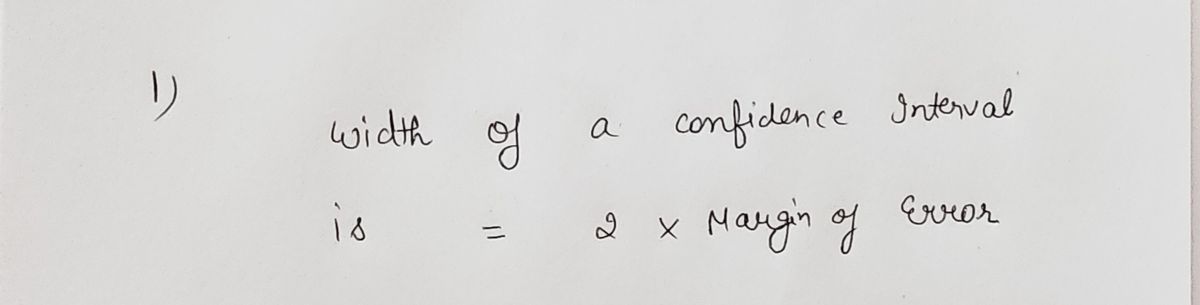 1)
width of a confidence Interval
is = 2 × Margin of Error